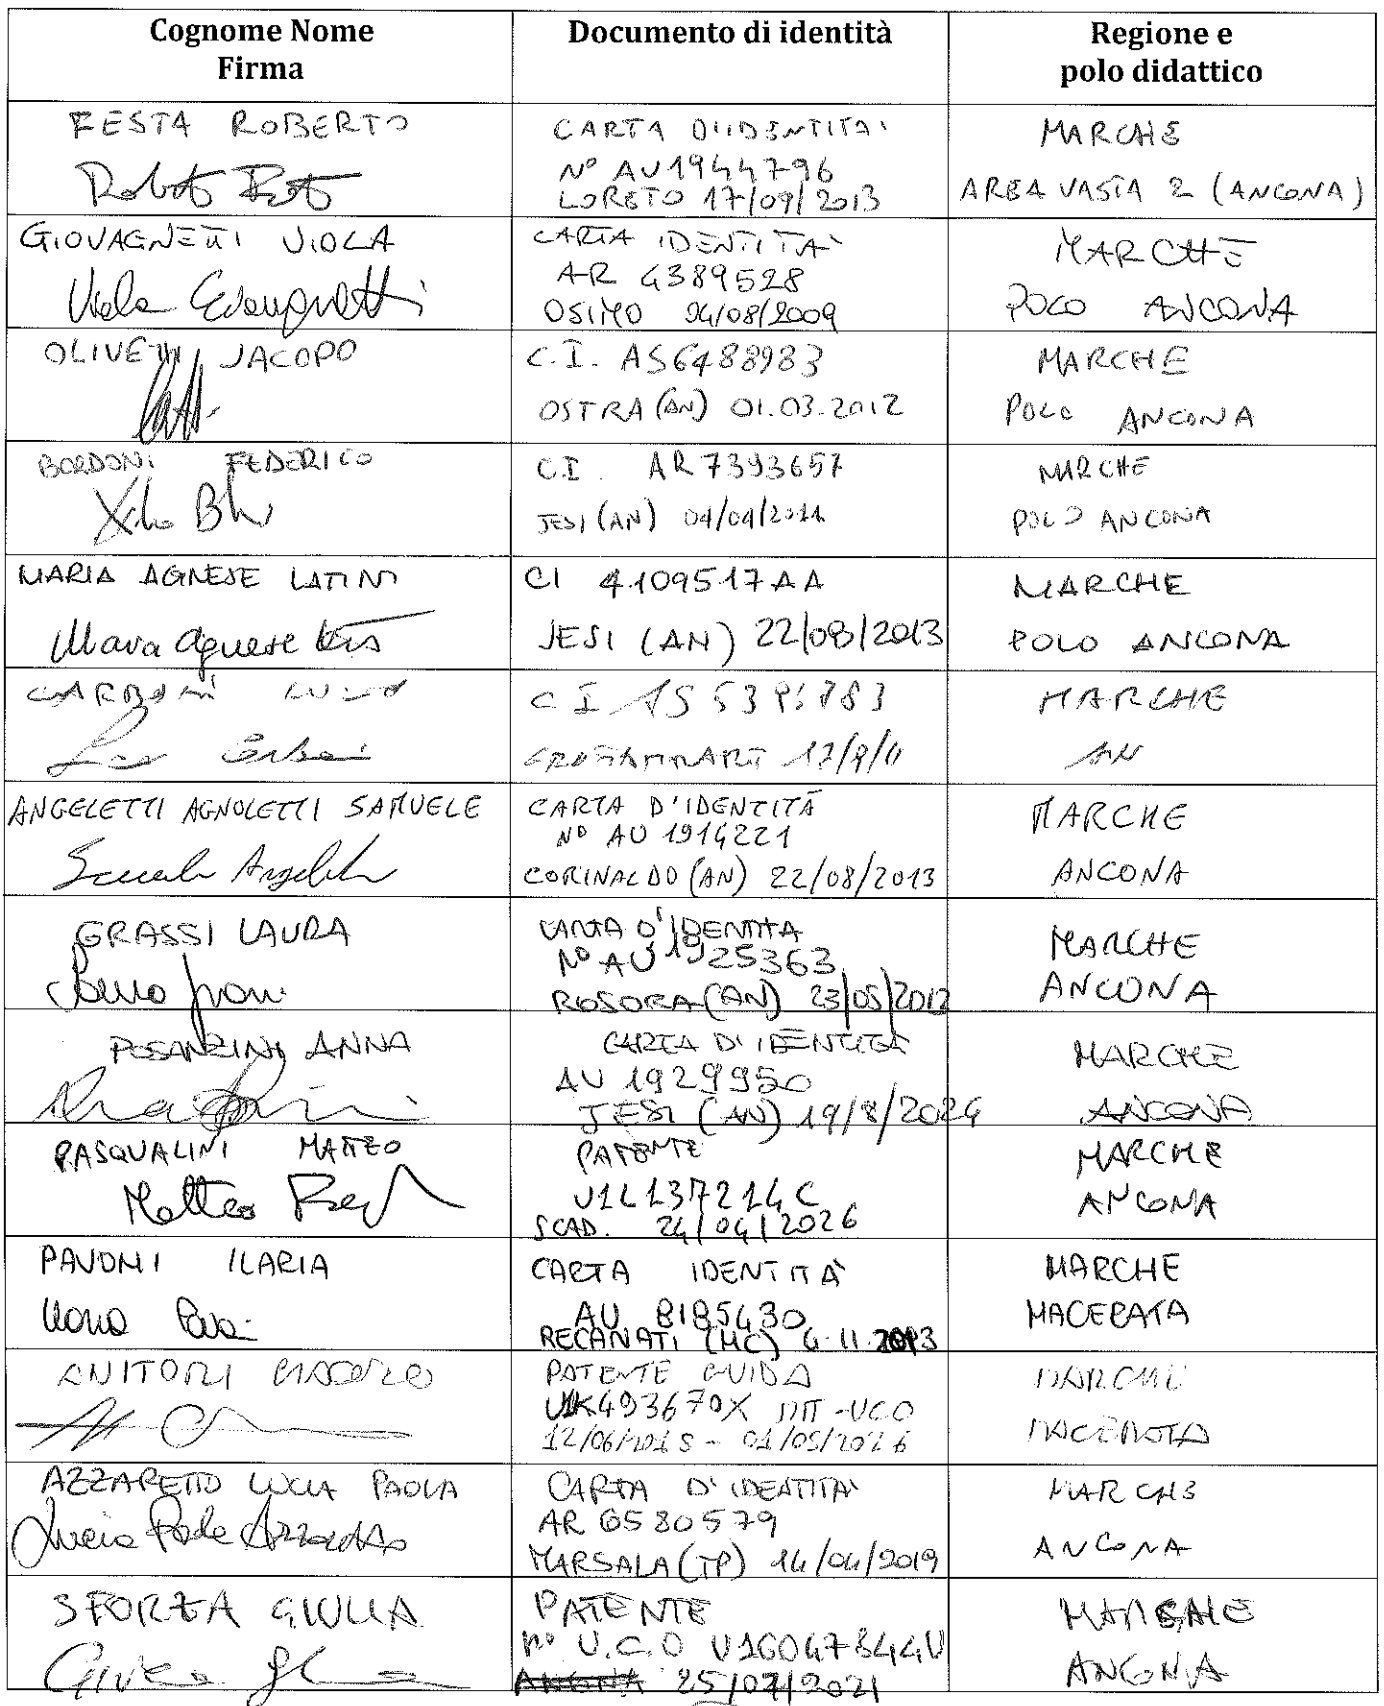 Cognome Nome
Firma
Documento di identità
Regione e
polo didattico
FESTA ROBERTO
CARTA D'IDENTITA'
N° AU1944796
LORETO 17/09/2013
MARCHE
AREA VASTA 2 (ANCONA)
GIOVAGNETTI VIOLA
Viola Giovagnetti
CARTA IDENTITA'
AR 4389528
OSIMO 04/08/2009
MARCHE
POLO ANCONA
OLIVETTI JACOPO
C.I. AS6488983
OSTRA (AN) 01.03.2012
MARCHE
POLO ANCONA
BORDONI FEDERICO
C.I. AR 7393657
JESI (AN)
MARCHE
POLO ANCONA
MARIA AGNESE LATINI
Maria Agnese
CI 4109517AA
JESI (AN) 22/08/2013
MARCHE
POLO ANCONA
CARBONI LUCA
Luca Carboni
C I
MARCHE
AN
ANGELETTI AGNOLETTI SAMUELE
CARTA D'IDENTITÀ
N° AU 1914221
CORINALDO (AN) 22/08/2013
MARCHE
ANCONA
GRASSI LAURA
CARTA D'IDENTITA
N° AU 1925363
ROSORA (AN)
MARCHE
ANCONA
POSANZINI ANNA
CARTA DI IDENTITÀ
AU 1929950
JESI (AN) 19/8/2024
MARCHE
ANCONA
PASQUALINI MATTEO
Matteo
PATENTE
U1L137214C
SCAD. 24/04/2026
MARCHE
ANCONA
PAVONI ILARIA
CARTA IDENTITÀ
AU 8185430
RECANATI (MC) 4.11.2013
MARCHE
MACERATA
ANITORI
PATENTE GUIDA
U1K493670X MIT-UCO
MARCHE
MACERATA
AZZARETTO LUCIA PAOLA
Lucia Paola Azzaretto
CARTA D'IDENTITA'
AR 6580579
MARSALA (TP) 14/04/2019
MARCHE
ANCONA
SFORZA GIULIA
PATENTE
n° U.C.O
25/07/2021
MARCHE
ANCONA